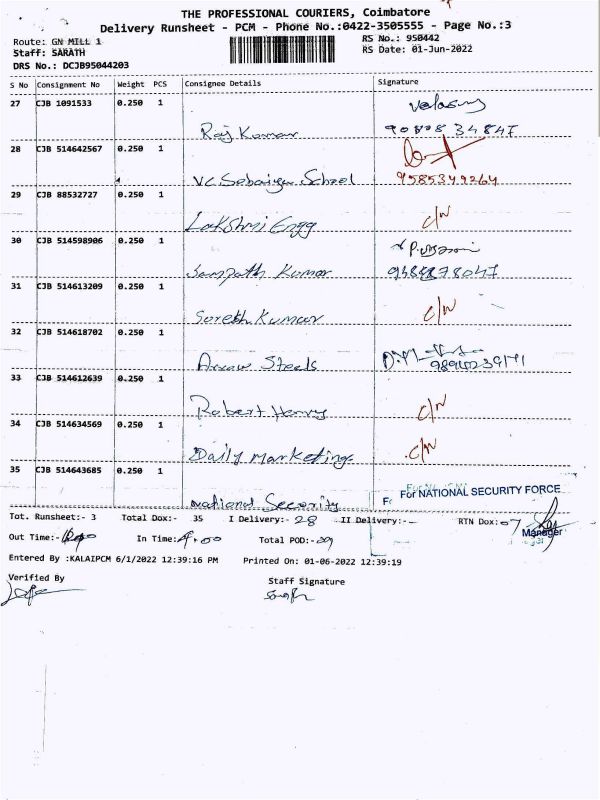 THE PROFESSIONAL COURIERS, Coimbatore
Delivery Runsheet - PCM - Phone No.:0422-3505555 - Page No.:3
Route: GN MILL 1
RS No.: 950442
Staff: SARATH
RS Date: 01-Jun-2022
DRS No.: DCJB95044203
S No Consignment No Weight PCS Consignee Details Signature
27 CJB 1091533 0.250 1
Raj Kumar
28 CJB 514642567 0.250 1
VC Sebaiyu School 9585349264
29 CJB 88532727 0.250 1 C/N
Lakshmi Engg
30 CJB 514598906 0.250 1
Sampath Kumar
31 CJB 514613209 0.250 1 C/N
Suresh Kumar
32 CJB 514618702 0.250 1
Arrow Steels
33 CJB 514612639 0.250 1 C/N
Robert Henry
34 CJB 514634569 0.250 1 C/N
Daily Marketing
35 CJB 514643685 0.250 1
National Security For NATIONAL SECURITY FORCE
Tot. Runsheet:- 3 Total Dox:- 35 I Delivery:- 28 II Delivery:-- RTN Dox:- 07
Manager
Out Time:- In Time:- 4.00 Total POD:- 29
Entered By :KALAIPCM 6/1/2022 12:39:16 PM Printed On: 01-06-2022 12:39:19
Verified By Staff Signature